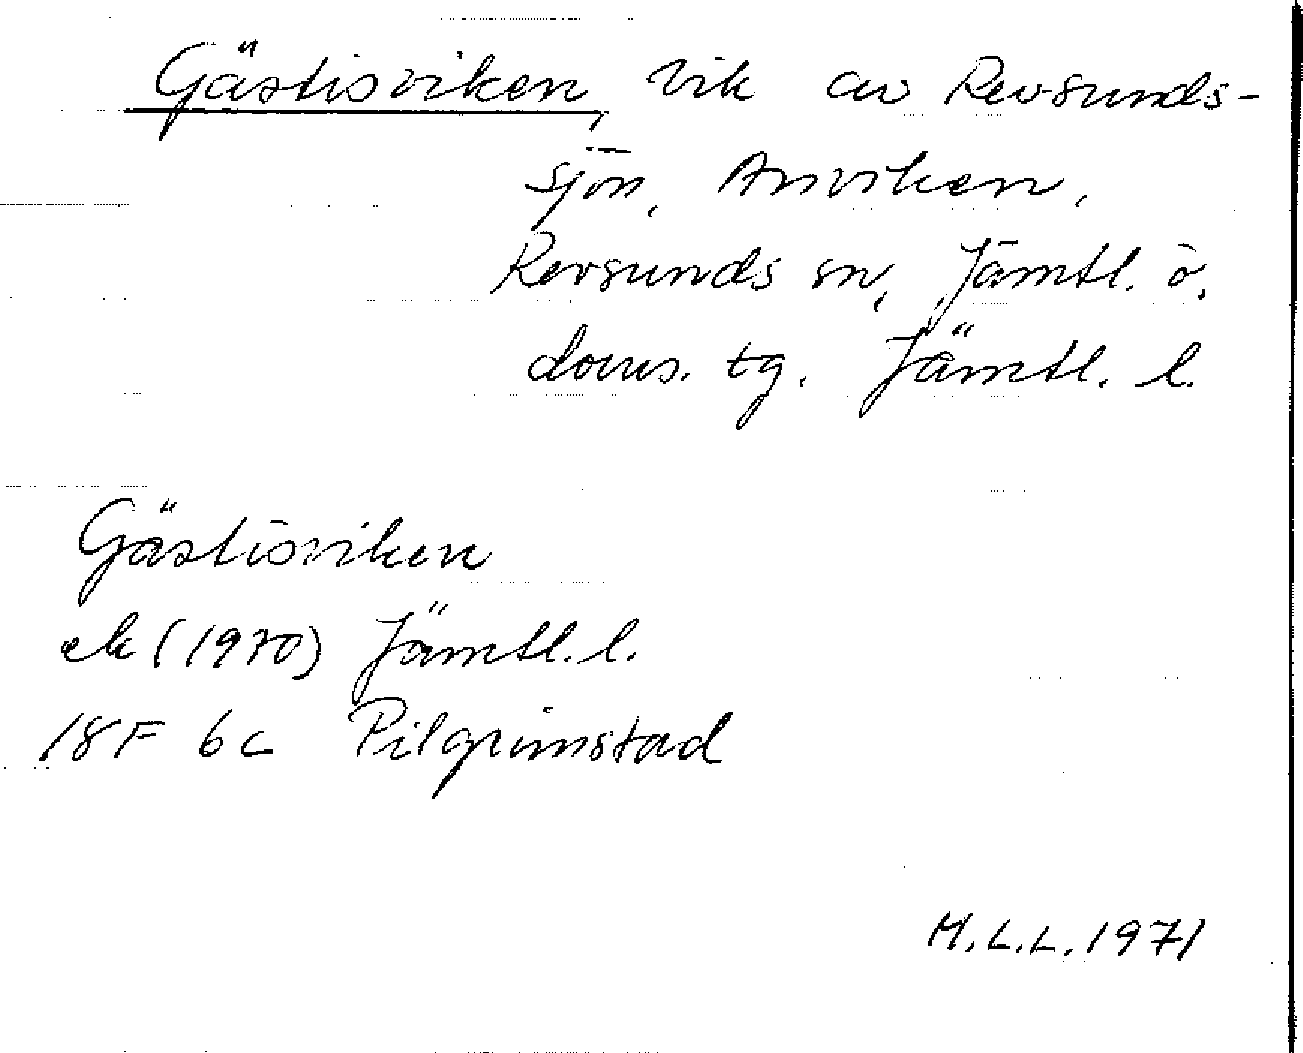 Gästisviken, vik av Revsunds-
sjön, Anviken,
Revsunds sn, Jämtl. ö.
doms. tg. Jämtl. l.
Gästisviken
ek (1970) Jämtl. l.
18F 6c Pilgrimstad
M.L.L. 1971